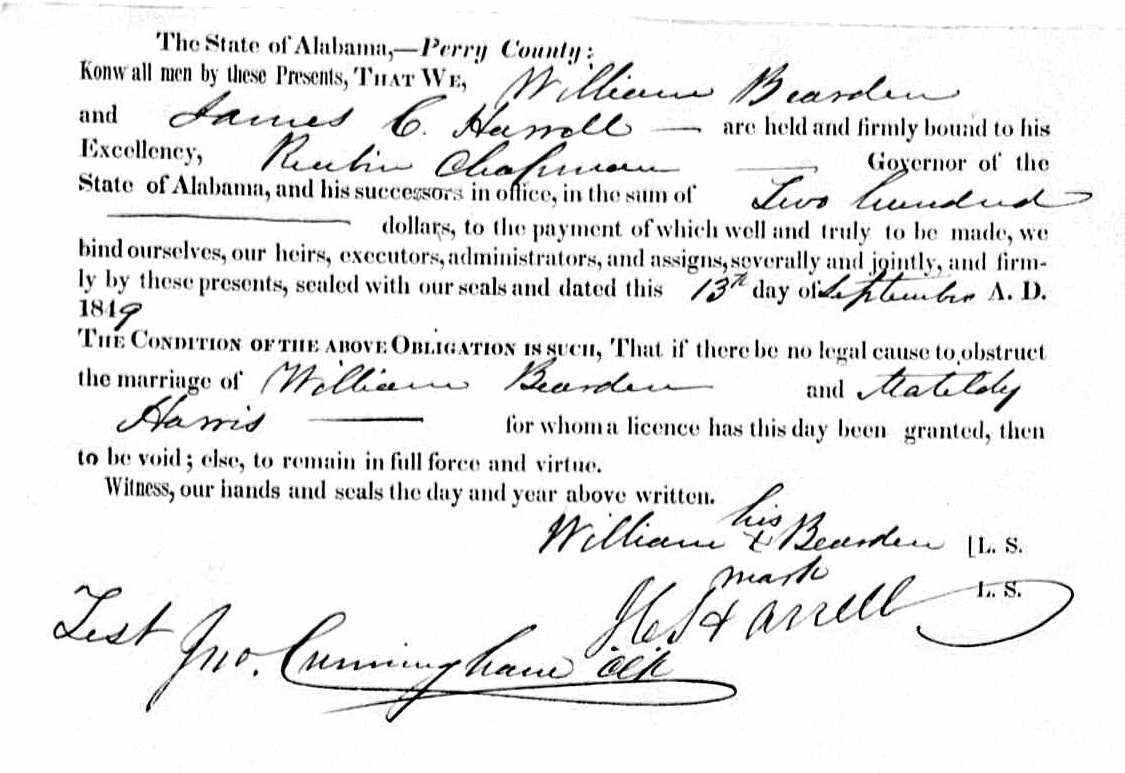 The State of Alabama,—Perry County:
Konw all men by these Presents, THAT WE, William Bearden
and James C. Harrell — are held and firmly bound to his
Excellency, Reubin Chapman — Governor of the
State of Alabama, and his successors in office, in the sum of Two hundred
— dollars, to the payment of which well and truly to be made, we
bind ourselves, our heirs, executors, administrators, and assigns, severally and jointly, and firm-
ly by these presents, sealed with our seals and dated this 13th day of September A. D.
1849
THE CONDITION OF THE ABOVE OBLIGATION IS SUCH, That if there be no legal cause to obstruct
the marriage of William Bearden and Matildy
Harris — for whom a licence has this day been granted, then
to be void; else, to remain in full force and virtue.
Witness, our hands and seals the day and year above written.
his
William x Bearden [L. S.
mark
Harrell L. S.
Test Jno. Cunningham Clk